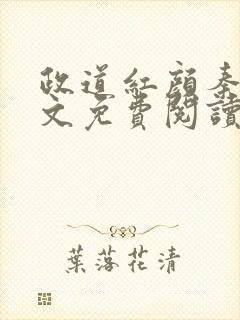 政道紅顏秦
文免費閱讀
葉落花清